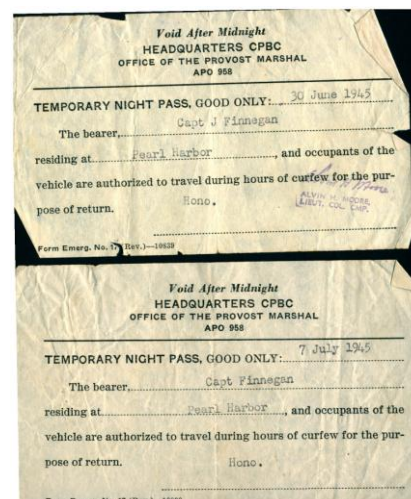 Void After Midnight
HEADQUARTERS CPBC
OFFICE OF THE PROVOST MARSHAL
APO 958
TEMPORARY NIGHT PASS, GOOD ONLY: 30 June 1945
The bearer, Capt J Finnegan
residing at Pearl Harbor , and occupants of the
vehicle are authorized to travel during hours of curfew for the pur-
pose of return. Hono.
ALVIN H. MOORE
LIEUT. COL. CMP.
Form Emerg. No. 17 (Rev.)—10639
Void After Midnight
HEADQUARTERS CPBC
OFFICE OF THE PROVOST MARSHAL
APO 958
TEMPORARY NIGHT PASS, GOOD ONLY: 7 July 1945
The bearer, Capt Finnegan
residing at Pearl Harbor , and occupants of the
vehicle are authorized to travel during hours of curfew for the pur-
pose of return. Hono.